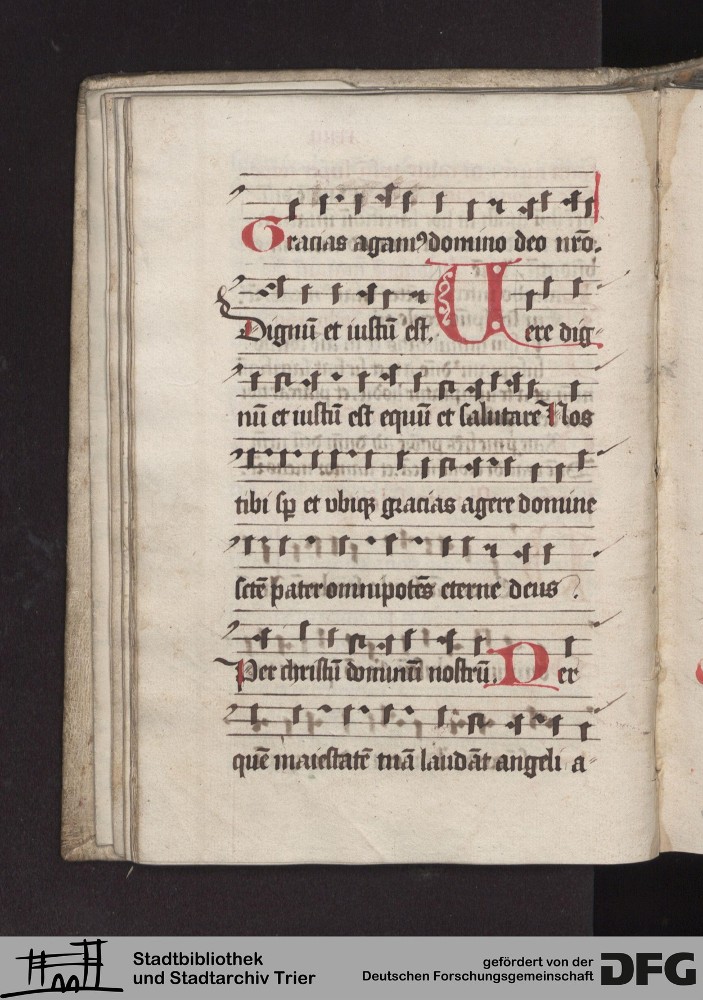 Gracias agamꝰ domino deo nr̄o.
Dignū et iustū est. Uere dig⸗
nū et iustū est equū et salutarē Nos
tibi sp̱ et vbiqꝫ gracias agere domine
sctē pater omnipotēs eterne deus
Per christū dominū nostrū. Per
quē maiestatē tuā laudāt angeli a⸗
Stadtbibliothek
und Stadtarchiv Trier
gefördert von der
Deutschen Forschungsgemeinschaft
DFG